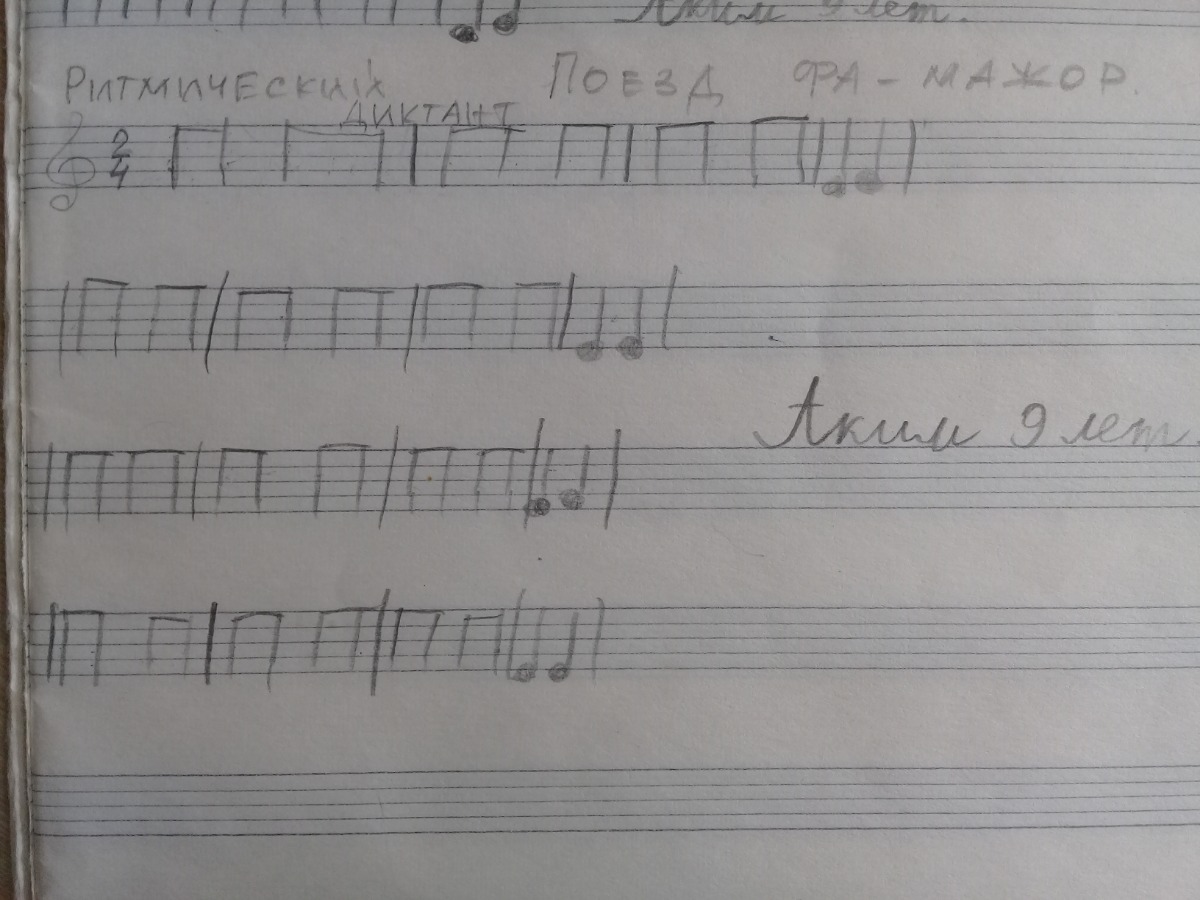 Аким 9 лет.
РИТМИЧЕСКИЙ ПОЕЗД ФА-МАЖОР.
ДИКТАНТ
2
4
Аким 9 лет